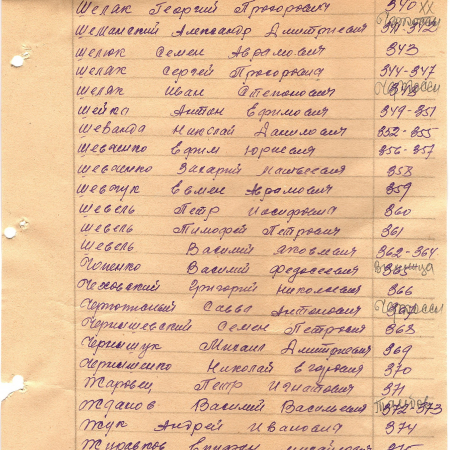 Шелак Георгий Прохорович 340
Шеманский Александр Дмитриевич 341-342
Шелюк Семен Аврамович 343
Шелак Сергей Прохорович 344-347
Шелак Иван Степанович 348
Шейка Антон Ефимович 349-351
Николай Данилович 352-355
Шевченко Ефим Юриевич 356-357
Шевченко Захарий Матвеевич 358
Шевчук Евмен Аврамович 359
Шевель Петр Иосифович 360
Шевель Тимофей Петрович 361
Шевель Василий Яковлевич 362-364
Чопенко Василий Федосеевич
Чеховский Григорий Николаевич 366
Савва Антонович
Чернышевский Семен Петрович 368
Чернышук Михаил Дмитриевич 369
Чернышенко Николай Егорович 370
Петр Игнатович 371
Жданов Василий Васильевич 372-373
Жук Андрей Иванович 374